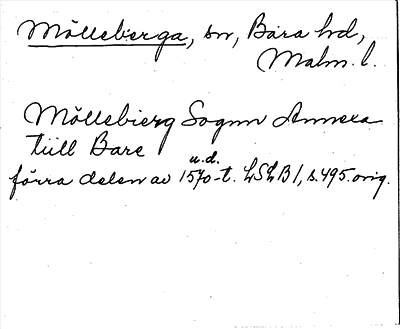 Mölleberga, sn, Bara hd,
Malm. l.
Möllebierg Sognn Annexa
till Bare
u.d.
förra delen av 1570-t. LSLB I, s. 495. orig.